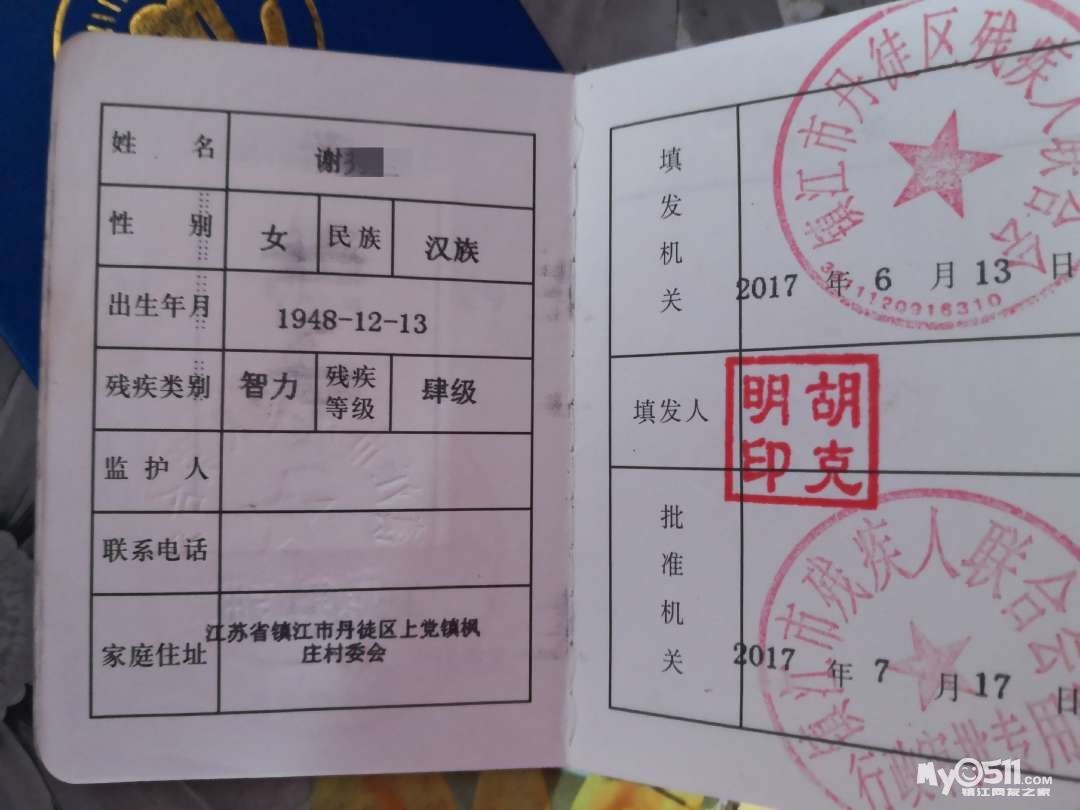 姓名
谢
性别
女
民族
汉族
出生年月
1948-12-13
残疾类别
智力
残疾
等级
肆级
监护人
联系电话
家庭住址
江苏省镇江市丹徒区上党镇枫
庄村委会
填发机关
镇江市丹徒区残疾人联合会
2017年6月13日
填发人
胡克
明印
批准机关
镇江市残疾人联合会
2017年7月17日
MyO511.com
镇江网友之家